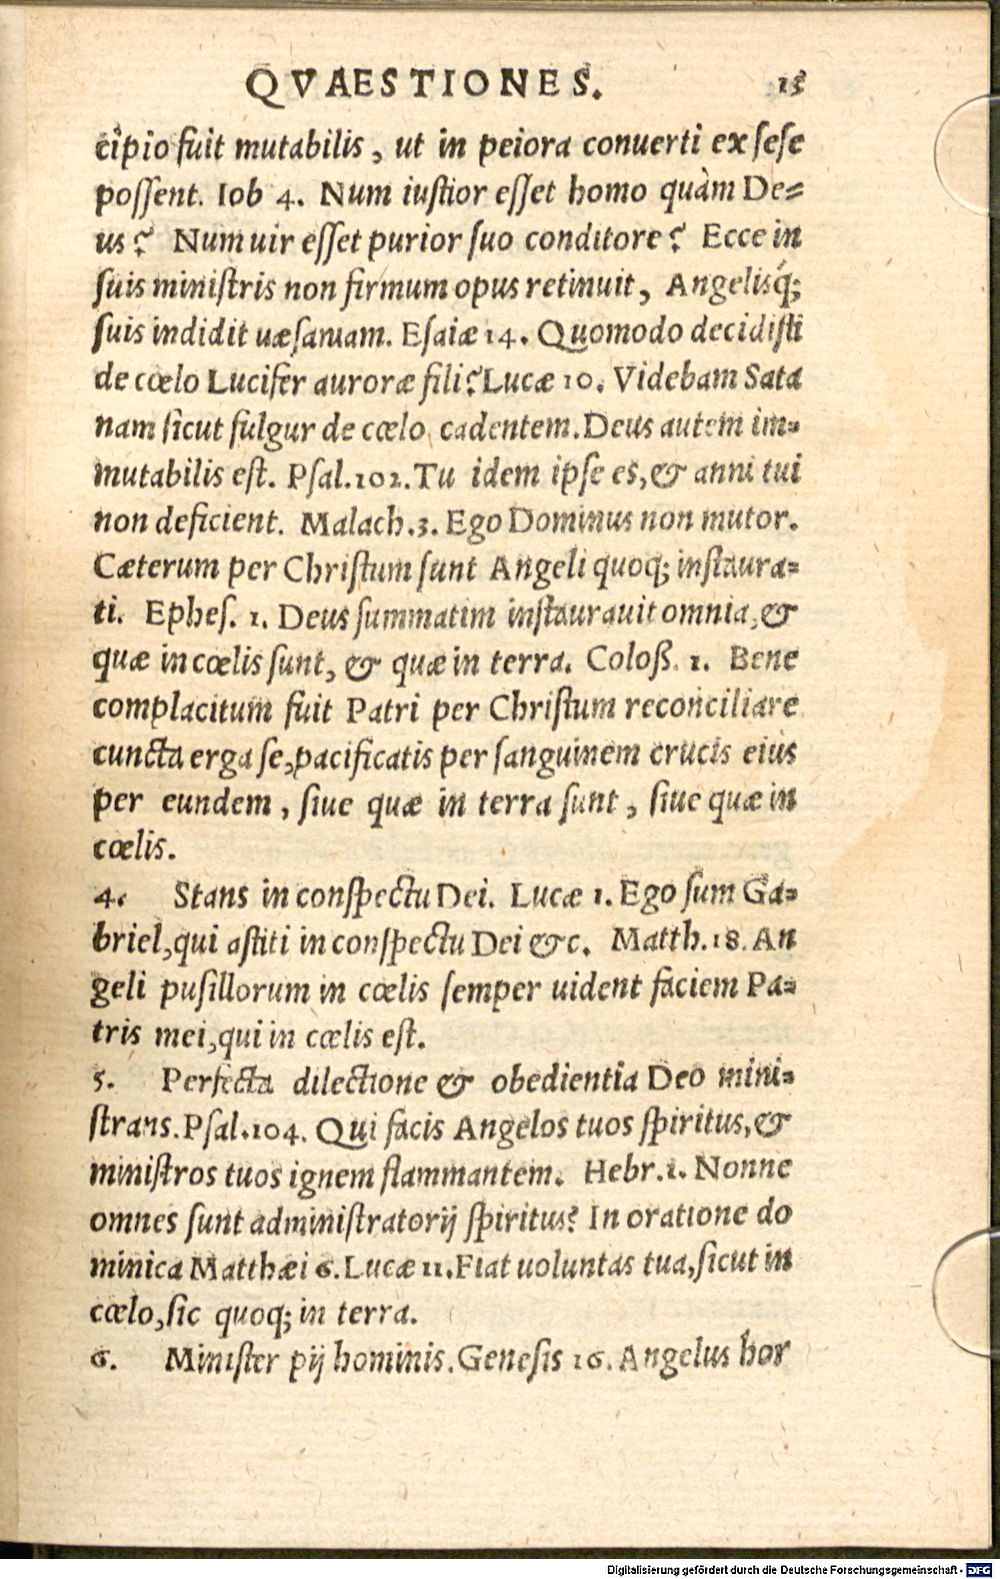 QVAESTIONES. 15
cipio fuit mutabilis, ut in peiora conuerti ex sese
possent. Iob 4. Num iustior esset homo quàm De=
us? Num uir esset purior suo conditore? Ecce in
suis ministris non firmum opus retinuit, Angelisq́;
suis indidit uæsaniam. Esaiæ 14. Quomodo decidisti
de cœlo Lucifer auroræ fili? Lucæ 10. Videbam Sata
nam sicut fulgur de cœlo cadentem. Deus autem im=
mutabilis est. Psal. 102. Tu idem ipse es, & anni tui
non deficient. Malach. 3. Ego Dominus non mutor.
Cæterum per Christum sunt Angeli quoq; instaura=
ti. Ephes. 1. Deus summatim instaurauit omnia, &
quæ in cœlis sunt, & quæ in terra. Coloß. 1. Bene
complacitum fuit Patri per Christum reconciliare
cuncta erga se, pacificatis per sanguinem crucis eius
per eundem, siue quæ in terra sunt, siue quæ in
cœlis.
4. Stans in conspectu Dei. Lucæ 1. Ego sum Ga=
briel, qui astiti in conspectu Dei &c. Matth. 18. An
geli pusillorum in cœlis semper uident faciem Pa=
tris mei, qui in cœlis est.
5. Perfecta dilectione & obedientia Deo mini=
strans. Psal. 104. Qui facis Angelos tuos spiritus, &
ministros tuos ignem flammantem. Hebr. 1. Nonne
omnes sunt administratorij spiritus? In oratione do
minica Matthæi 6. Lucæ 11. Fiat uoluntas tua, sicut in
cœlo, sic quoq; in terra.
6. Minister pij hominis. Genesis 16. Angelus hor
Digitalisierung gefördert durch die Deutsche Forschungsgemeinschaft - DFG